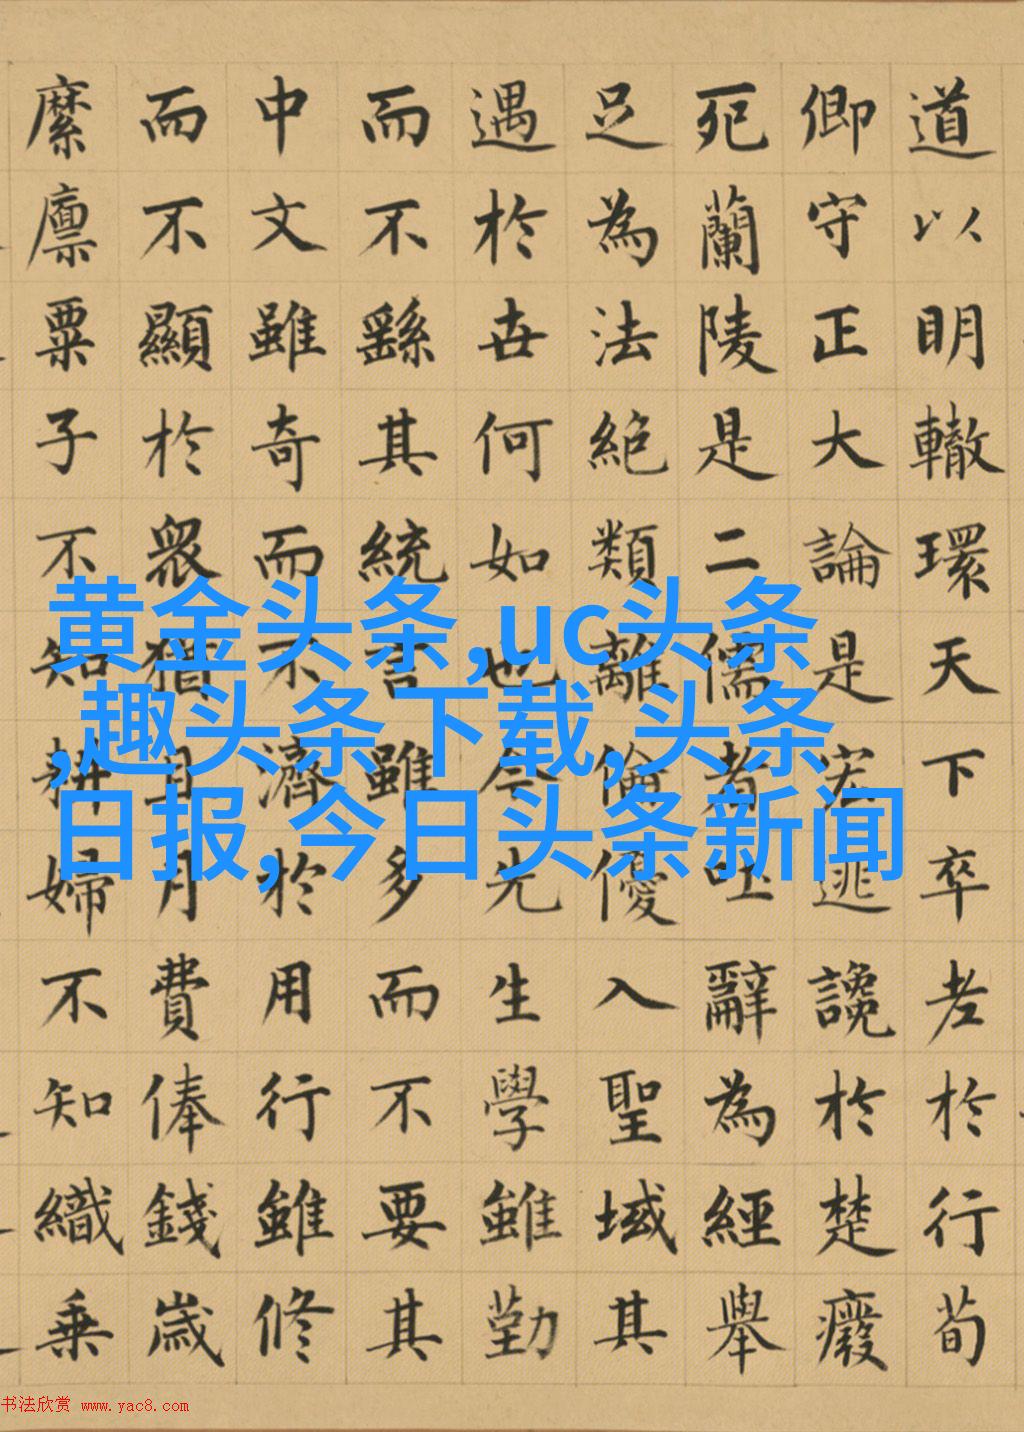 道以明轍環天下卒老於行荀
卿守正大論是宏逃讒於楚廢
死蘭陵是二儒者吐辭為經舉
足為法絕類離倫優入聖域其
遇於世何如也今先生學雖勤
而不繇其統言雖多而不要其
中文雖奇而不濟於用行雖修
而不顯於眾猶且月費俸錢歲
縻廩粟子不知耕婦不知織乘
黄金头条,uc头条
,趣头条下载,头条
日报,今日头条新闻
书法欣赏 www.yac8.com